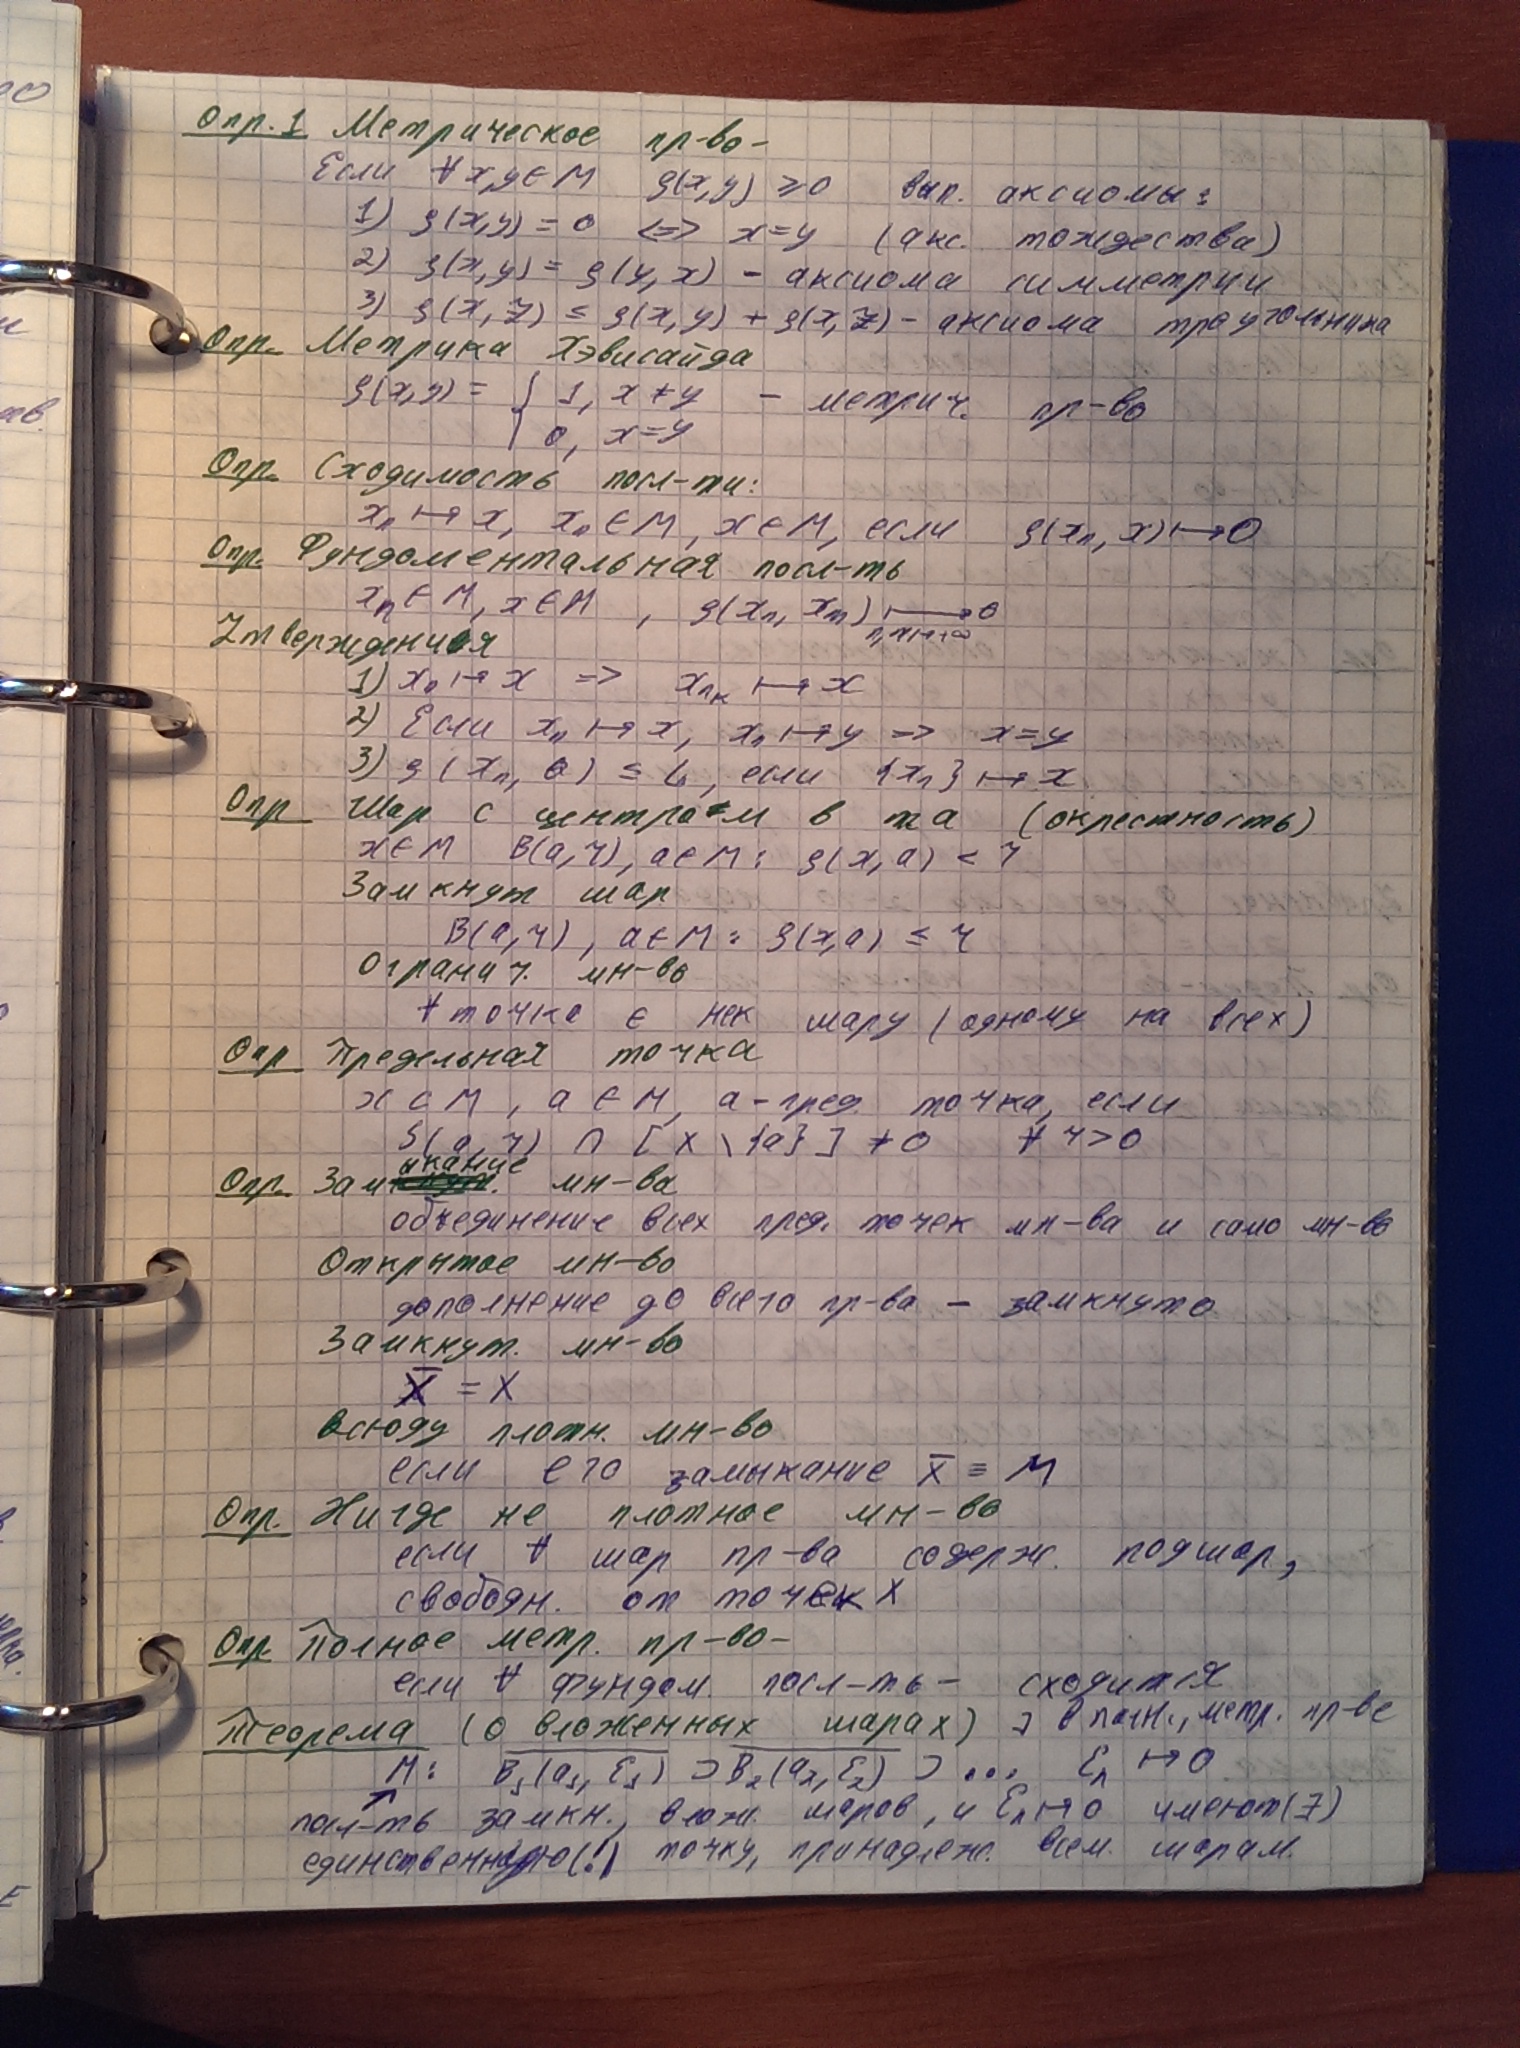 Опр.1 Метрическое пр-во-
Если ∀ x,y ∈ M ρ(x,y) ≥ 0 вып. аксиомы:
1) ρ(x,y) = 0 <=> x=y (акс. тождества)
2) ρ(x,y) = ρ(y,x) - аксиома симметрии
3) ρ(x,z) ≤ ρ(x,y) + ρ(x,z) - аксиома треугольника
Опр. Метрика Хэвисайда
ρ(x,y) = { 1, x ≠ y - метрич. пр-во
0, x=y
Опр. Сходимость посл-ти:
xₙ ↦ x, xₙ ∈ M, x ∈ M, если ρ(xₙ, x) ↦ 0
Опр. Фундоментальная посл-ть
xₙ ∈ M, x ∈ M , ρ(xₙ, xₘ) ⟼ 0
n,m→+∞
Утверждения
1) xₙ ↦ x => xₙₖ ↦ x
2) Если xₙ ↦ x, xₙ ↦ y => x=y
3) ρ(xₙ, a) ≤ L, если {xₙ} ↦ x
Опр Шар с центром в т a (окрестность)
x ∈ M B(a,r), a ∈ M: ρ(x,a) < r
Замкнут шар
B(a,r), a ∈ M: ρ(x,a) ≤ r
Огранич. мн-во
∀ точка ∈ нек шару (одному на всех)
Опр Предельная точка
x ⊂ M, a ∈ M, a - пред. точка, если
ρ(a,r) ∩ [X \ {a}] ≠ 0 ∀ r>0
Опр. Замыкание мн-ва
объединение всех пред. точек мн-ва и само мн-во
Открытое мн-во
дополнение до всего пр-ва - замкнуто
Замкнут. мн-во
X̅ = X
Всюду плотн. мн-во
если его замыкание X̅ = M
Опр. Нигде не плотное мн-во
если ∀ шар пр-ва содерж. подшар,
свободн. от точек X
Опр Полное метр. пр-во-
если ∀ фундом. посл-ть - сходится
Теорема (о вложенных шарах) ⊐ в полн., метр. пр-ве
M: B₁(a₁, ε₁) ⊃ B₂(a₂, ε₂) ⊃ ... εₙ ↦ 0
посл-ть замкн., влож. шаров, и εₙ ↦ 0 имеют(∃)
единственную(!) точку, принадлеж. всем. шарам.